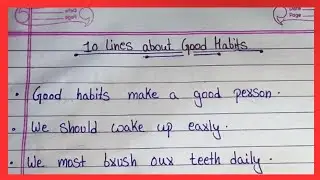 Date
Page
10 lines about Good Habits
• Good habits make a good person.
• We should wake up early.
• We most brush our teeth daily.